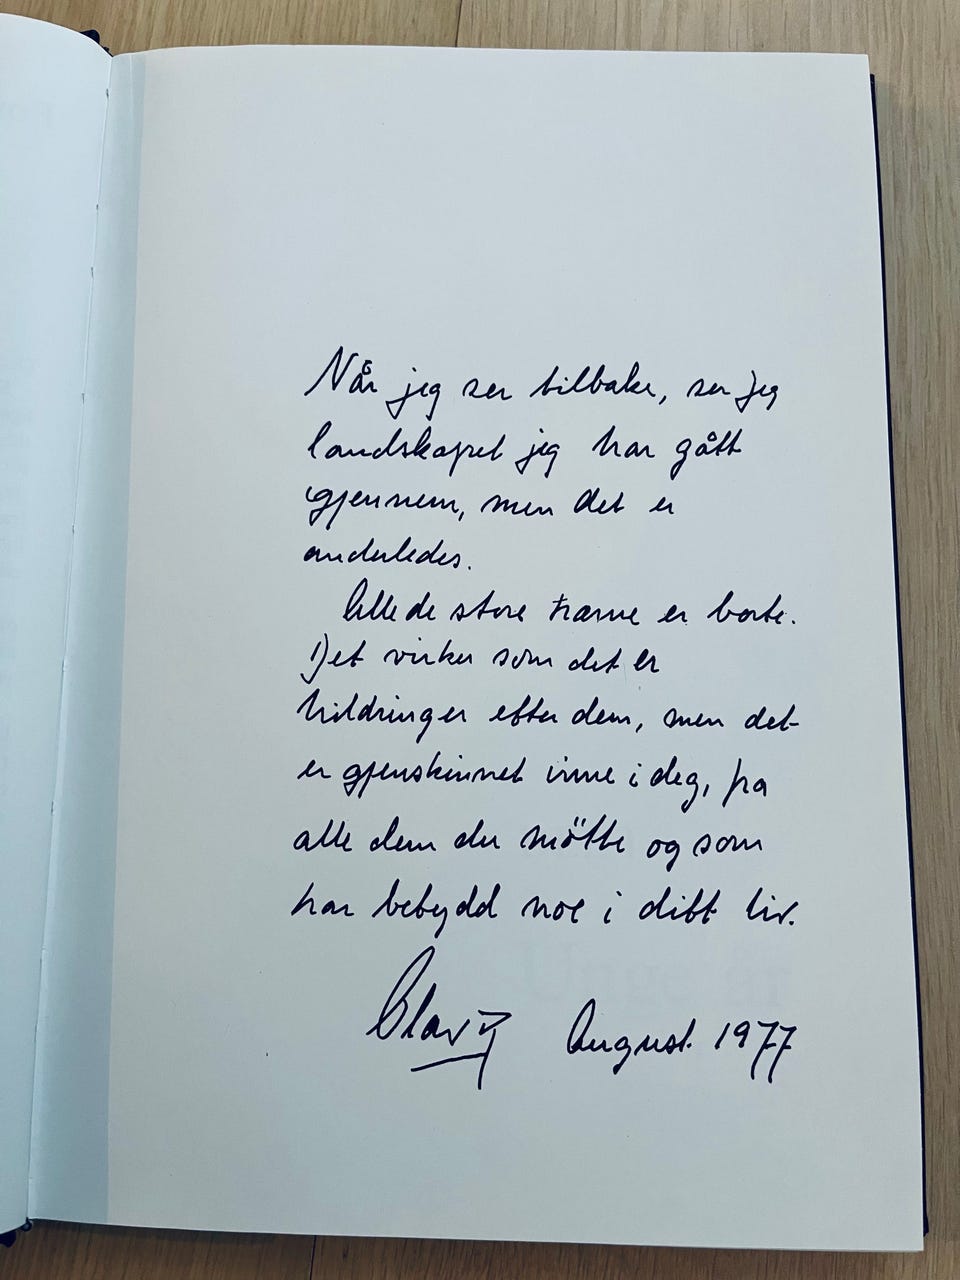 Når jeg ser tilbake, ser jeg
landskapet jeg har gått
gjennem, men det er
anderledes.
Alle de store trærne er borte.
Det virker som det er
hildringer efter dem, men det
er gjenskinnet inne i deg, fra
alle dem du møtte og som
har betydd noe i ditt liv.
Olav August 1977
Unge år